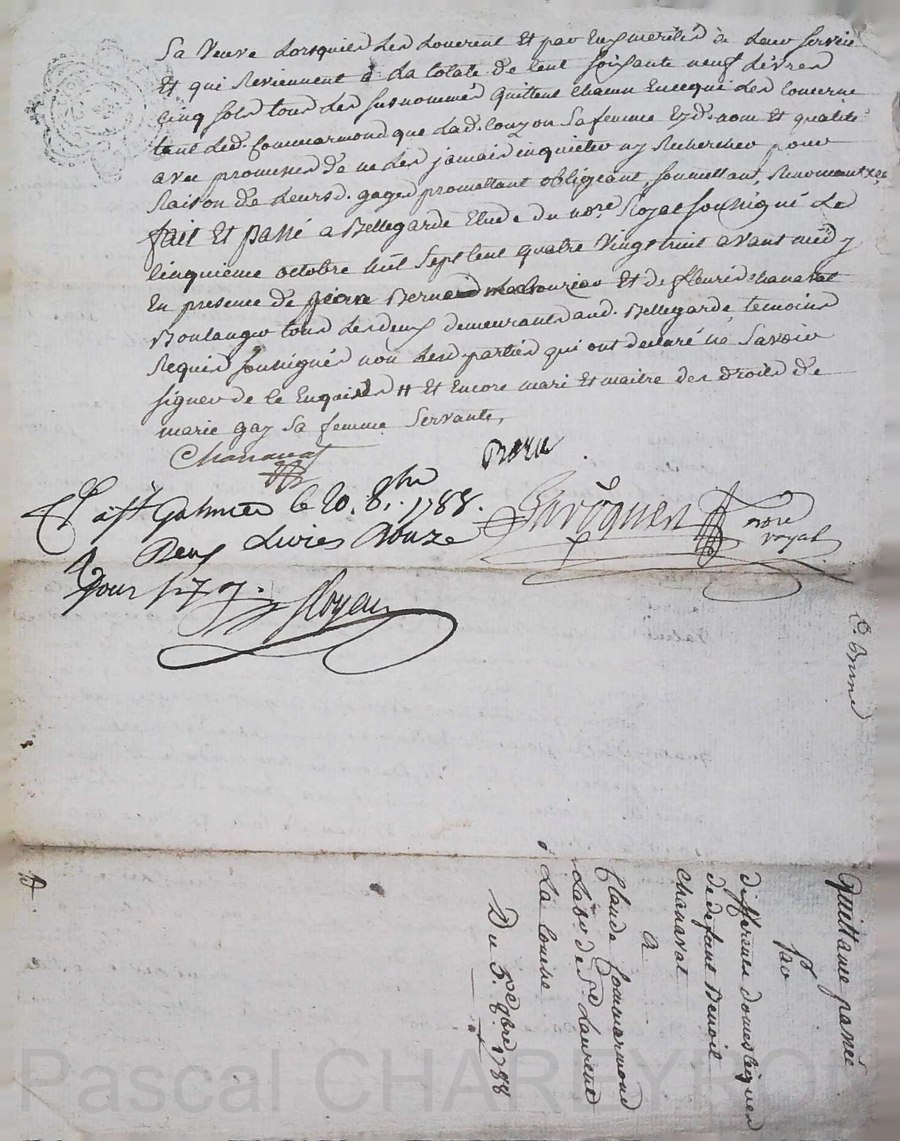 sa veuve lorsquils les doivent et par eux merités à leur service
Et qui Reviennent à la totale de Cent soixante neuf Livres
cinq sols tous les susnommés quittent chacun en ce qui les concerne
tant led. Commarmond que lad. Couzon sa femme ezd. nom et qualité
avec promesse de ne les jamais inquieter ny Rechercher pour
Raison de leursd. gages promettant obligeant, soumettant, Renonceant &c
fait et passé à Bellegarde Etude du nore. Royal soussigné Le
cinquieme octobre mil sept cent quatre vingt huit avant midy
En presence de jean Bernard et de fleuri chanavat
Boulanger tous les deux demeurants aud. Bellegarde, temoins
Requis soussignés non les parties qui ont declaré ne savoir
signer de ce Enquises # et Encore mari et maitre des droits de
marie gay sa femme servante,
Chanavat
Clé à St Galmier le 20. 8bre 1788.
R Deux Livres Douze
nore
royal
Pour
Quittance passée
par
differents domestiques
de defunt Benoit
chanavat
a
Claude Commarmond
Labr. de St Laurent
à La Combe
Du 5e 8bre 1788
Pascal CHAREYRON